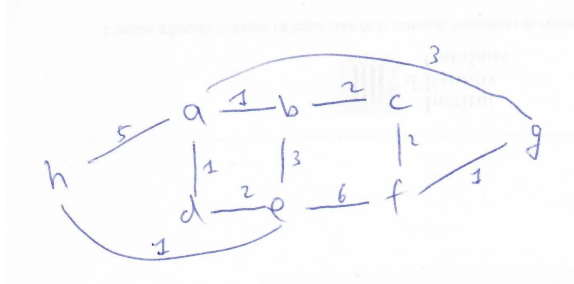 3
a 1 b 2 c
5
g
1 3 2
h
1
d 2 e 6 f
1